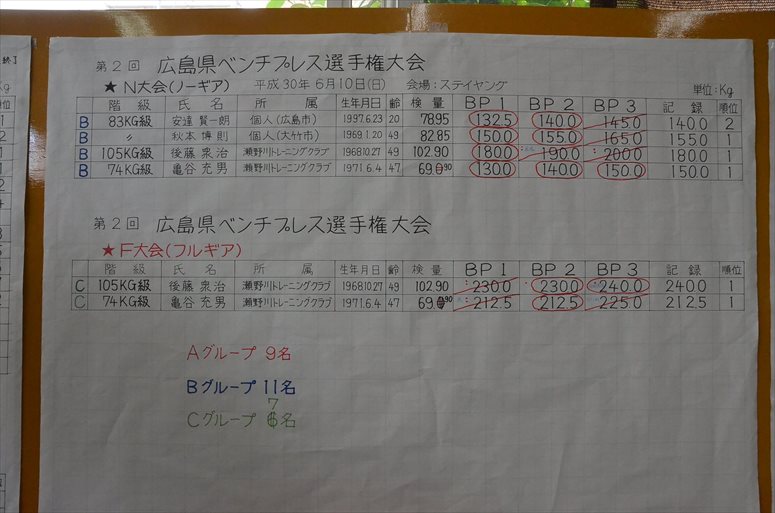 第2回 広島県ベンチプレス選手権大会
★ N大会(ノーギア) 平成30年 6月10日(日) 会場：ステイヤング 単位：Kg
階級 氏名 所属 生年月日 齢 検量 BP1 BP2 BP3 記録 順位
B 83KG級 安達 賢一朗 個人(広島市) 1997.6.23 20 78.95 132.5 140.0 145.0 140.0 2
B 〃 秋本 博則 個人(大竹市) 1969.1.20 49 82.85 150.0 155.0 165.0 155.0 1
B 105KG級 後藤 衆治 瀬野川トレーニングクラブ 1968.10.27 49 102.90 180.0 190.0 200.0 180.0 1
B 74KG級 亀谷 充男 瀬野川トレーニングクラブ 1971.6.4 47 69.90 130.0 140.0 150.0 150.0 1
第2回 広島県ベンチプレス選手権大会
★ F大会(フルギア)
階級 氏名 所属 生年月日 齢 検量 BP1 BP2 BP3 記録 順位
C 105KG級 後藤 衆治 瀬野川トレーニングクラブ 1968.10.27 49 102.90 230.0 230.0 240.0 240.0 1
C 74KG級 亀谷 充男 瀬野川トレーニングクラブ 1971.6.4 47 69.90 212.5 212.5 225.0 212.5 1
Aグループ 9名
Bグループ 11名
Cグループ 7名